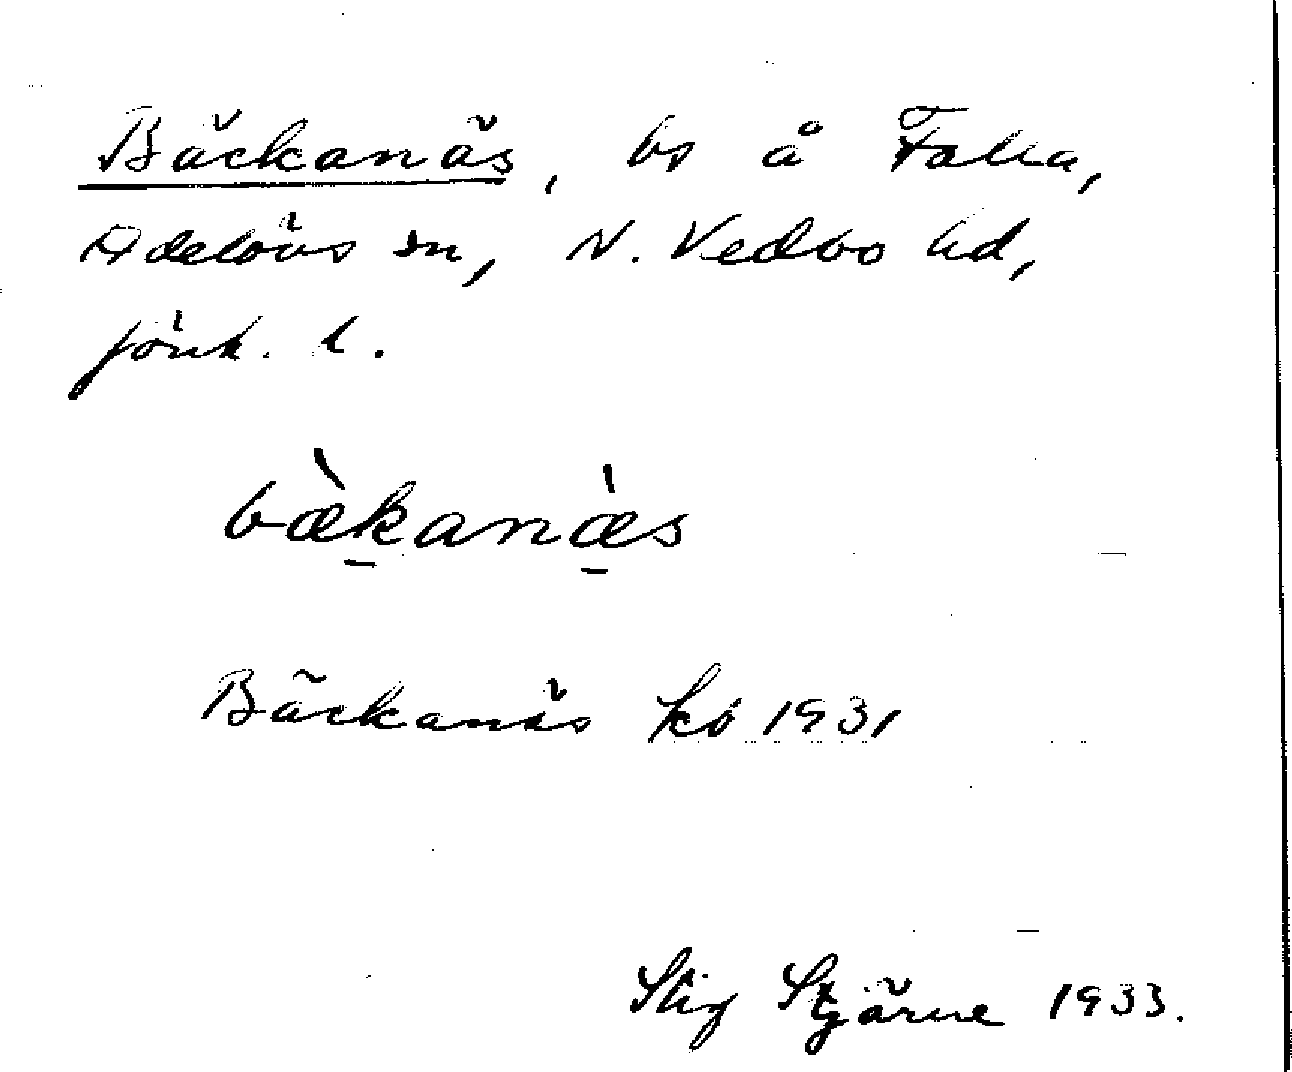 Bäckanäs, bs å Falla,
Adelövs sn, N. Vedbo hd,
Jönk. l.
bæ̀kanæ̀s
Bäckanäs kö 1931
Stig Stjärne 1933.